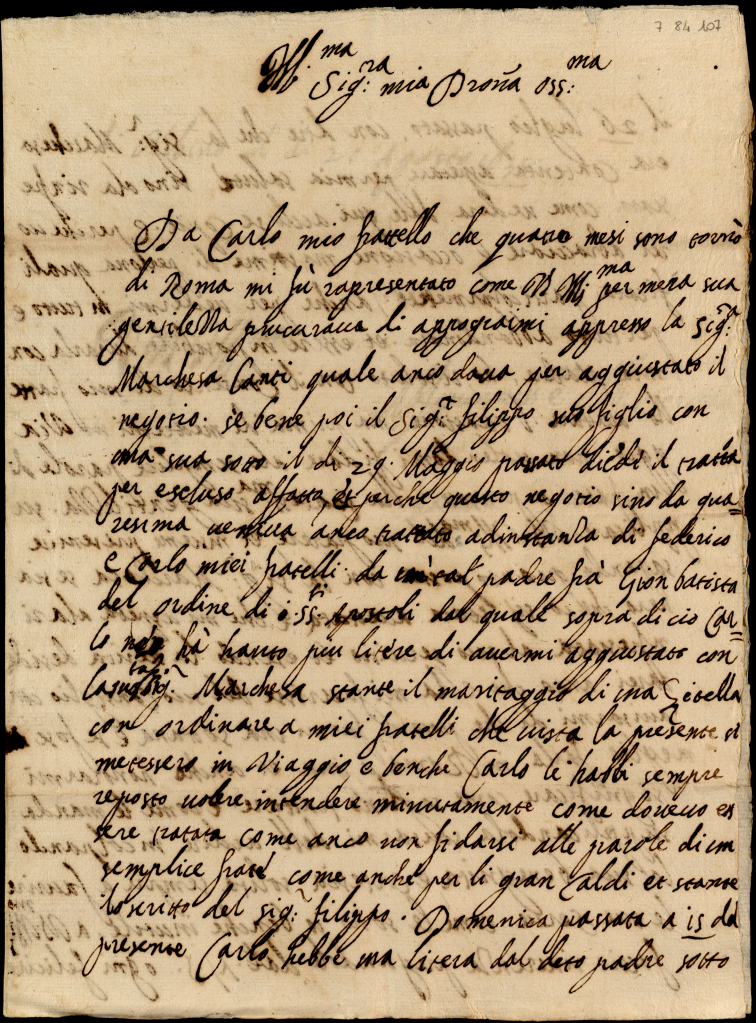 7 84 107
Ill.ma
Sig.ra mia Prona oss.ma
Da Carlo mio frattello che quatro mesi sono tornò
di Roma mi fù rapresentato come V. Ill.ma per mera sua
gentilezza procuraua di appogiarmi appresso la Sig.ra
Marchesa Santi quale anco daua per aggiustato il
negotio. se bene poi il Sig.r filippo suo figlio con
una sua sotto il di 29. Maggio passato diede il tratta
per escluso affatto, et perche questo negotio sino da qua=
resima ueniua anco trattato ad instanza di federico
e Carlo miei fratelli da un tal padre frà Gion batista
del ordine di i SS.ti Apostoli dal quale sopra di cio Car=
lo mio hà hauto piu litere di auermi aggiustato con
la sud.ta Sig.ra Marchesa stante il maritaggio di una Zitella
con ordinare a miei fratelli che uista la presente si
metessero in Viaggio e benche Carlo li habbi sempre
reposto uolere intendere minutamente come doueuo es
sere tratata come anco non fidarsi alle parole di un
semplice frate come anche per li gran Caldi et stante
lo scritto del sig.r filippo. Domenica passata a 15 del
presente Carlo hebbe una litera dal deto padre sotto